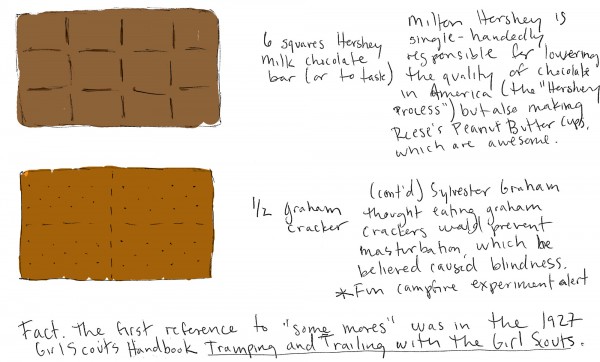 6 squares Hershey
milk chocolate
bar (or to taste)
Milton Hershey is
single-handedly
responsible for lowering
the quality of chocolate
in America (the "Hershey
Process") but also making
Reese's Peanut Butter Cups,
which are awesome.
1/2 graham
cracker
(cont'd) Sylvester Graham
thought eating graham
crackers would prevent
masturbation, which he
believed caused blindness.
*Fun campfire experiment alert
Fact. The first reference to "some mores" was in the 1927
Girl Scouts Handbook Tramping and Trailing with the Girl Scouts.